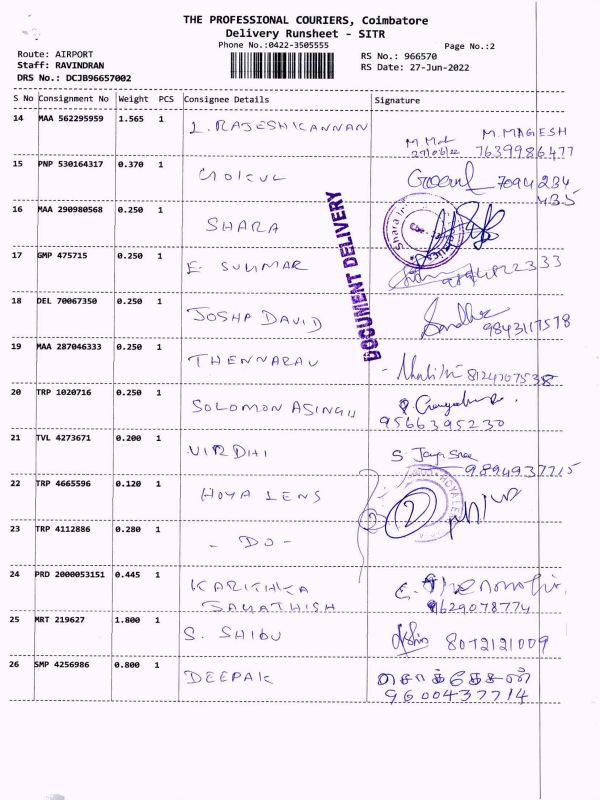 THE PROFESSIONAL COURIERS, Coimbatore
Delivery Runsheet - SITR
Phone No.:0422-3505555
Page No.:2
Route: AIRPORT
Staff: RAVINDRAN
DRS No.: DCJB96657002
RS No.: 966570
RS Date: 27-Jun-2022
S No Consignment No Weight PCS Consignee Details Signature
14 MAA 562295959 1.565 1 L. RAJESHKANNAN M. MAGESH
27/06/22 7639986477
15 PNP 530164317 0.370 1 GOKUL 7094234
435
16 MAA 290980568 0.250 1 SHARA
17 GMP 475715 0.250 1 E. SUKUMAR
18 DEL 70067350 0.250 1 JOSHP DAVID Sandhya
9843117578
DOCUMENT DELIVERY
19 MAA 287046333 0.250 1 THENNARAU 8124707538
20 TRP 1020716 0.250 1 SOLOMON ASINGH
9566395230
21 TVL 4273671 0.200 1 VIRDHI S. Jaya Sree
9894937715
22 TRP 4665596 0.120 1 HOYA LENS
23 TRP 4112886 0.280 1 - DO -
24 PRD 2000053151 0.445 1 KARITHKA
SAMATHISH 9629078774
25 MRT 219627 1.800 1 S. SHIBU 8012121009
26 SMP 4256986 0.800 1 DEEPAK
9600437714